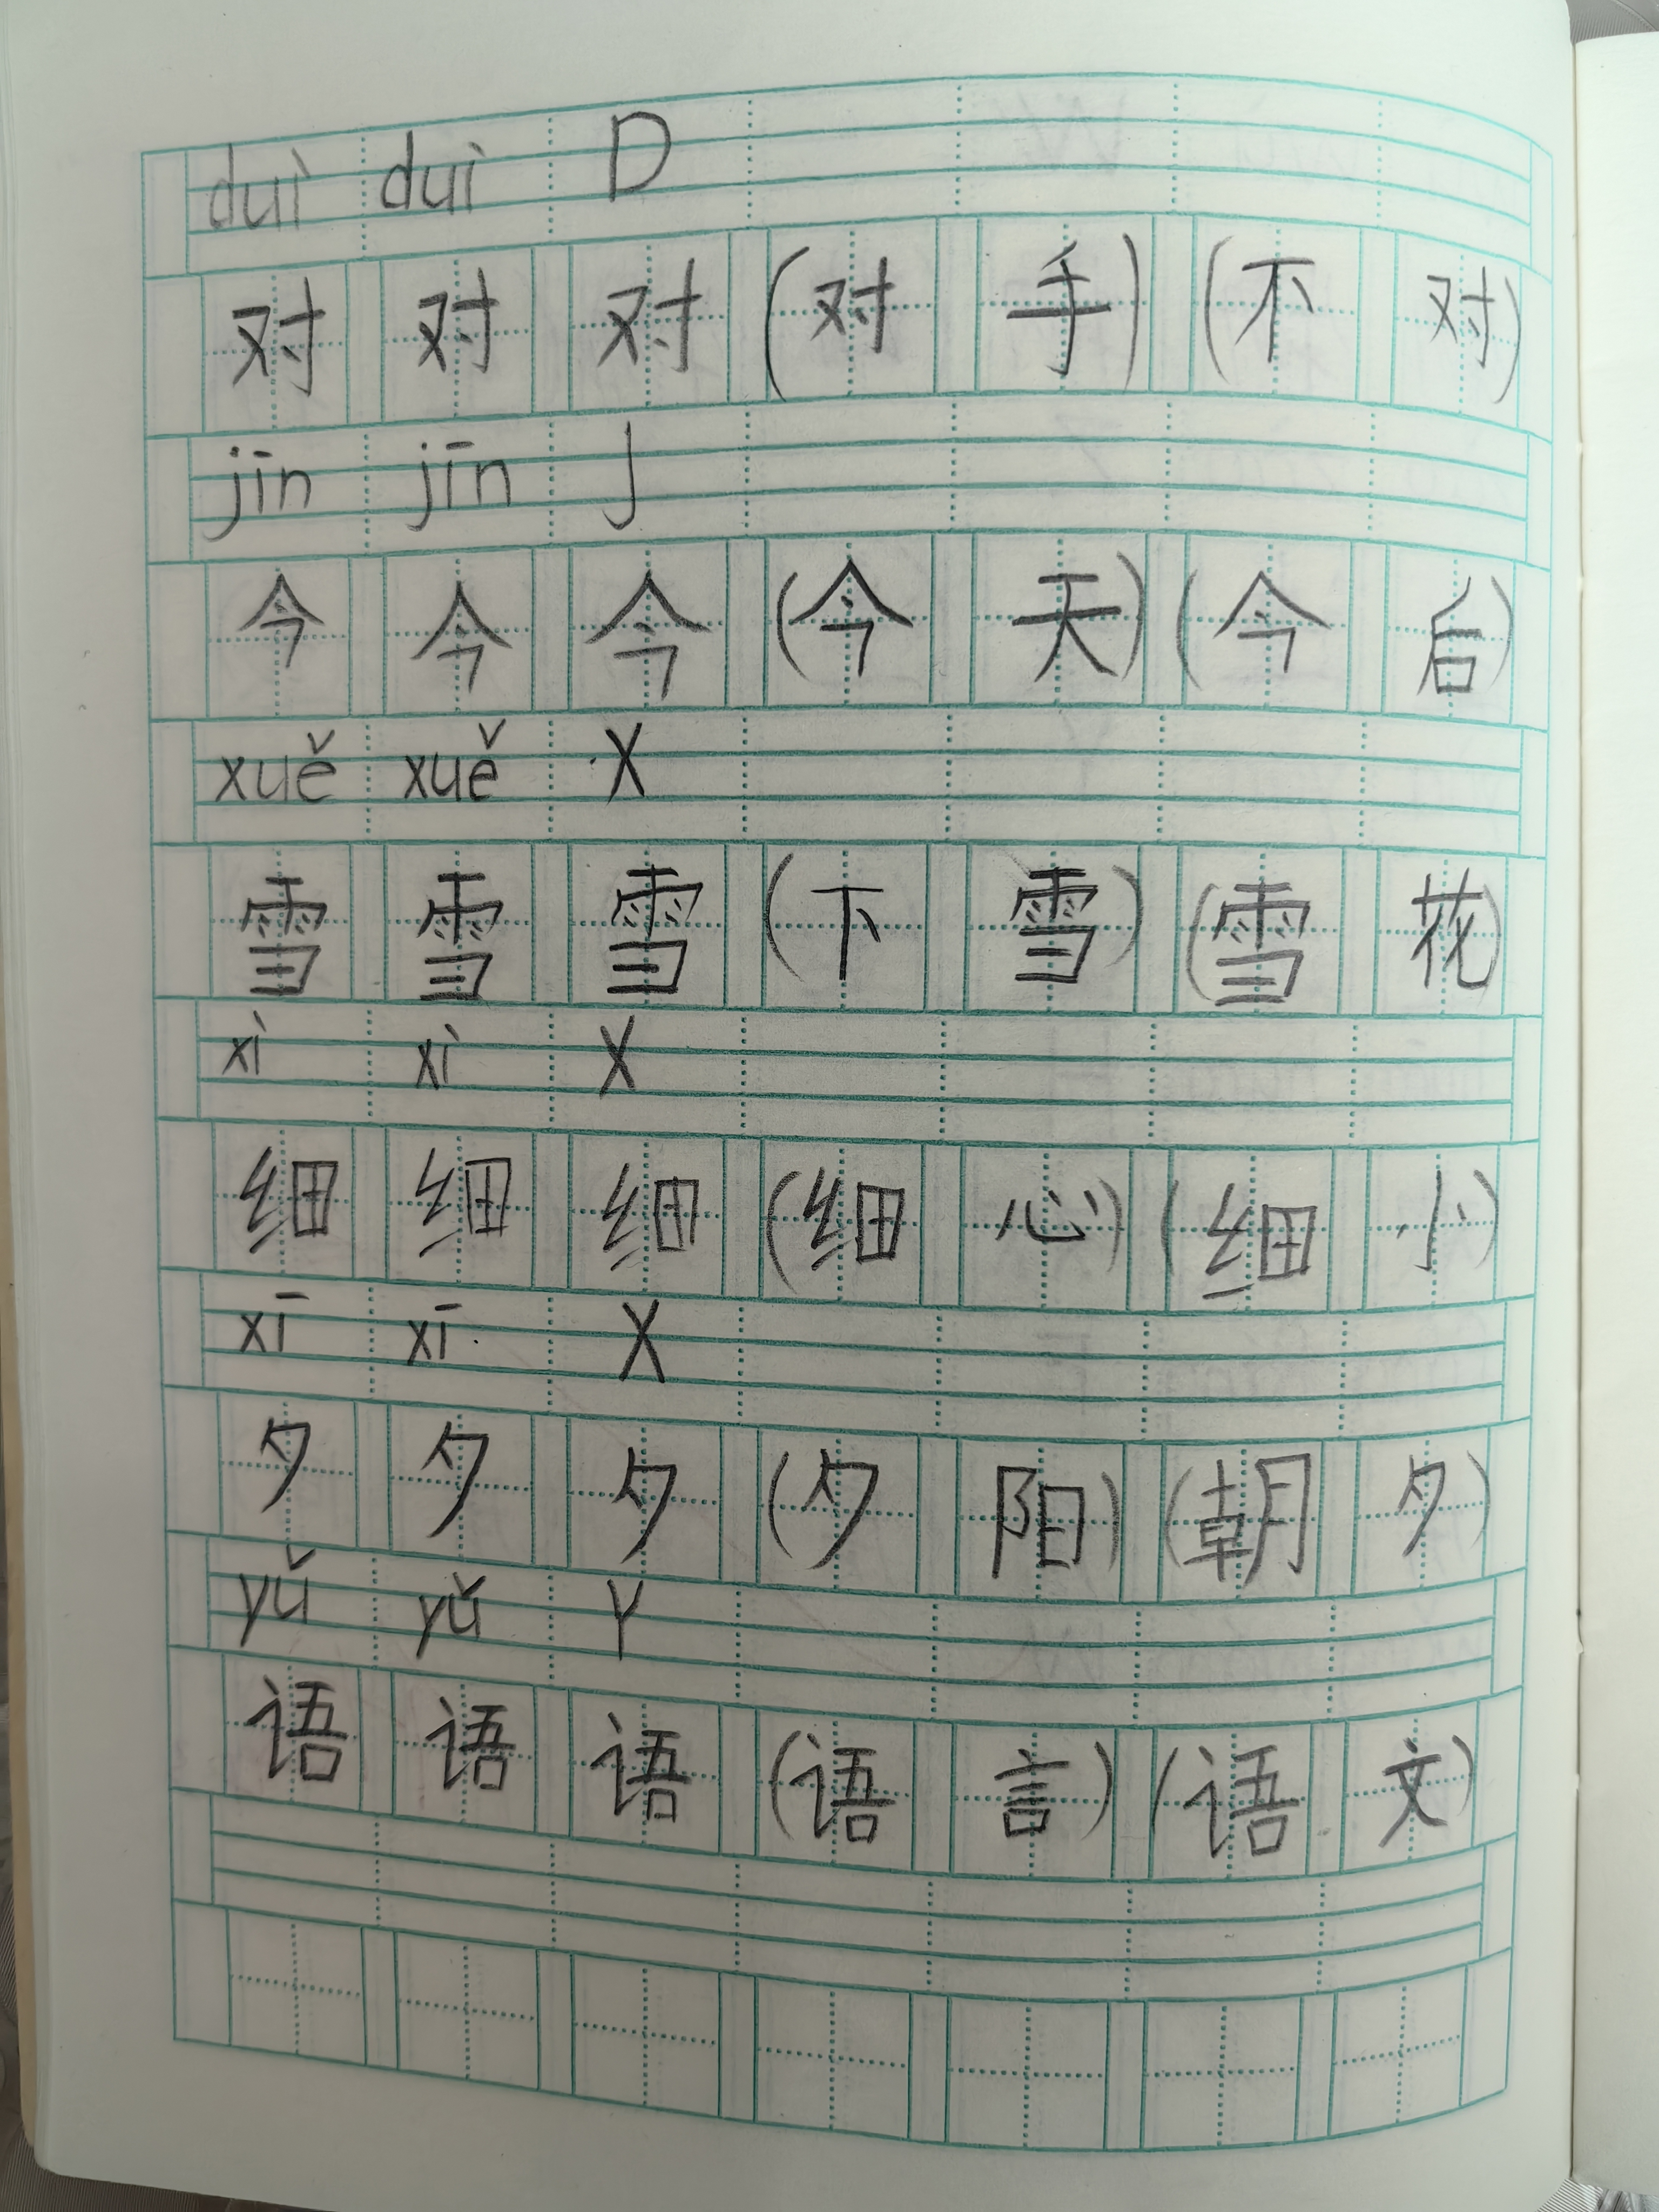 duì duì D
对 对 对 (对 手) (不 对)
jīn jīn J
今 今 今 (今 天) (今 后)
xuě xuě X
雪 雪 雪 (下 雪) (雪 花)
xì xì X
细 细 细 (细 心) (细 小)
xī xī X
夕 夕 夕 (夕 阳) (朝 夕)
yǔ yǔ Y
语 语 语 (语 言) (语 文)